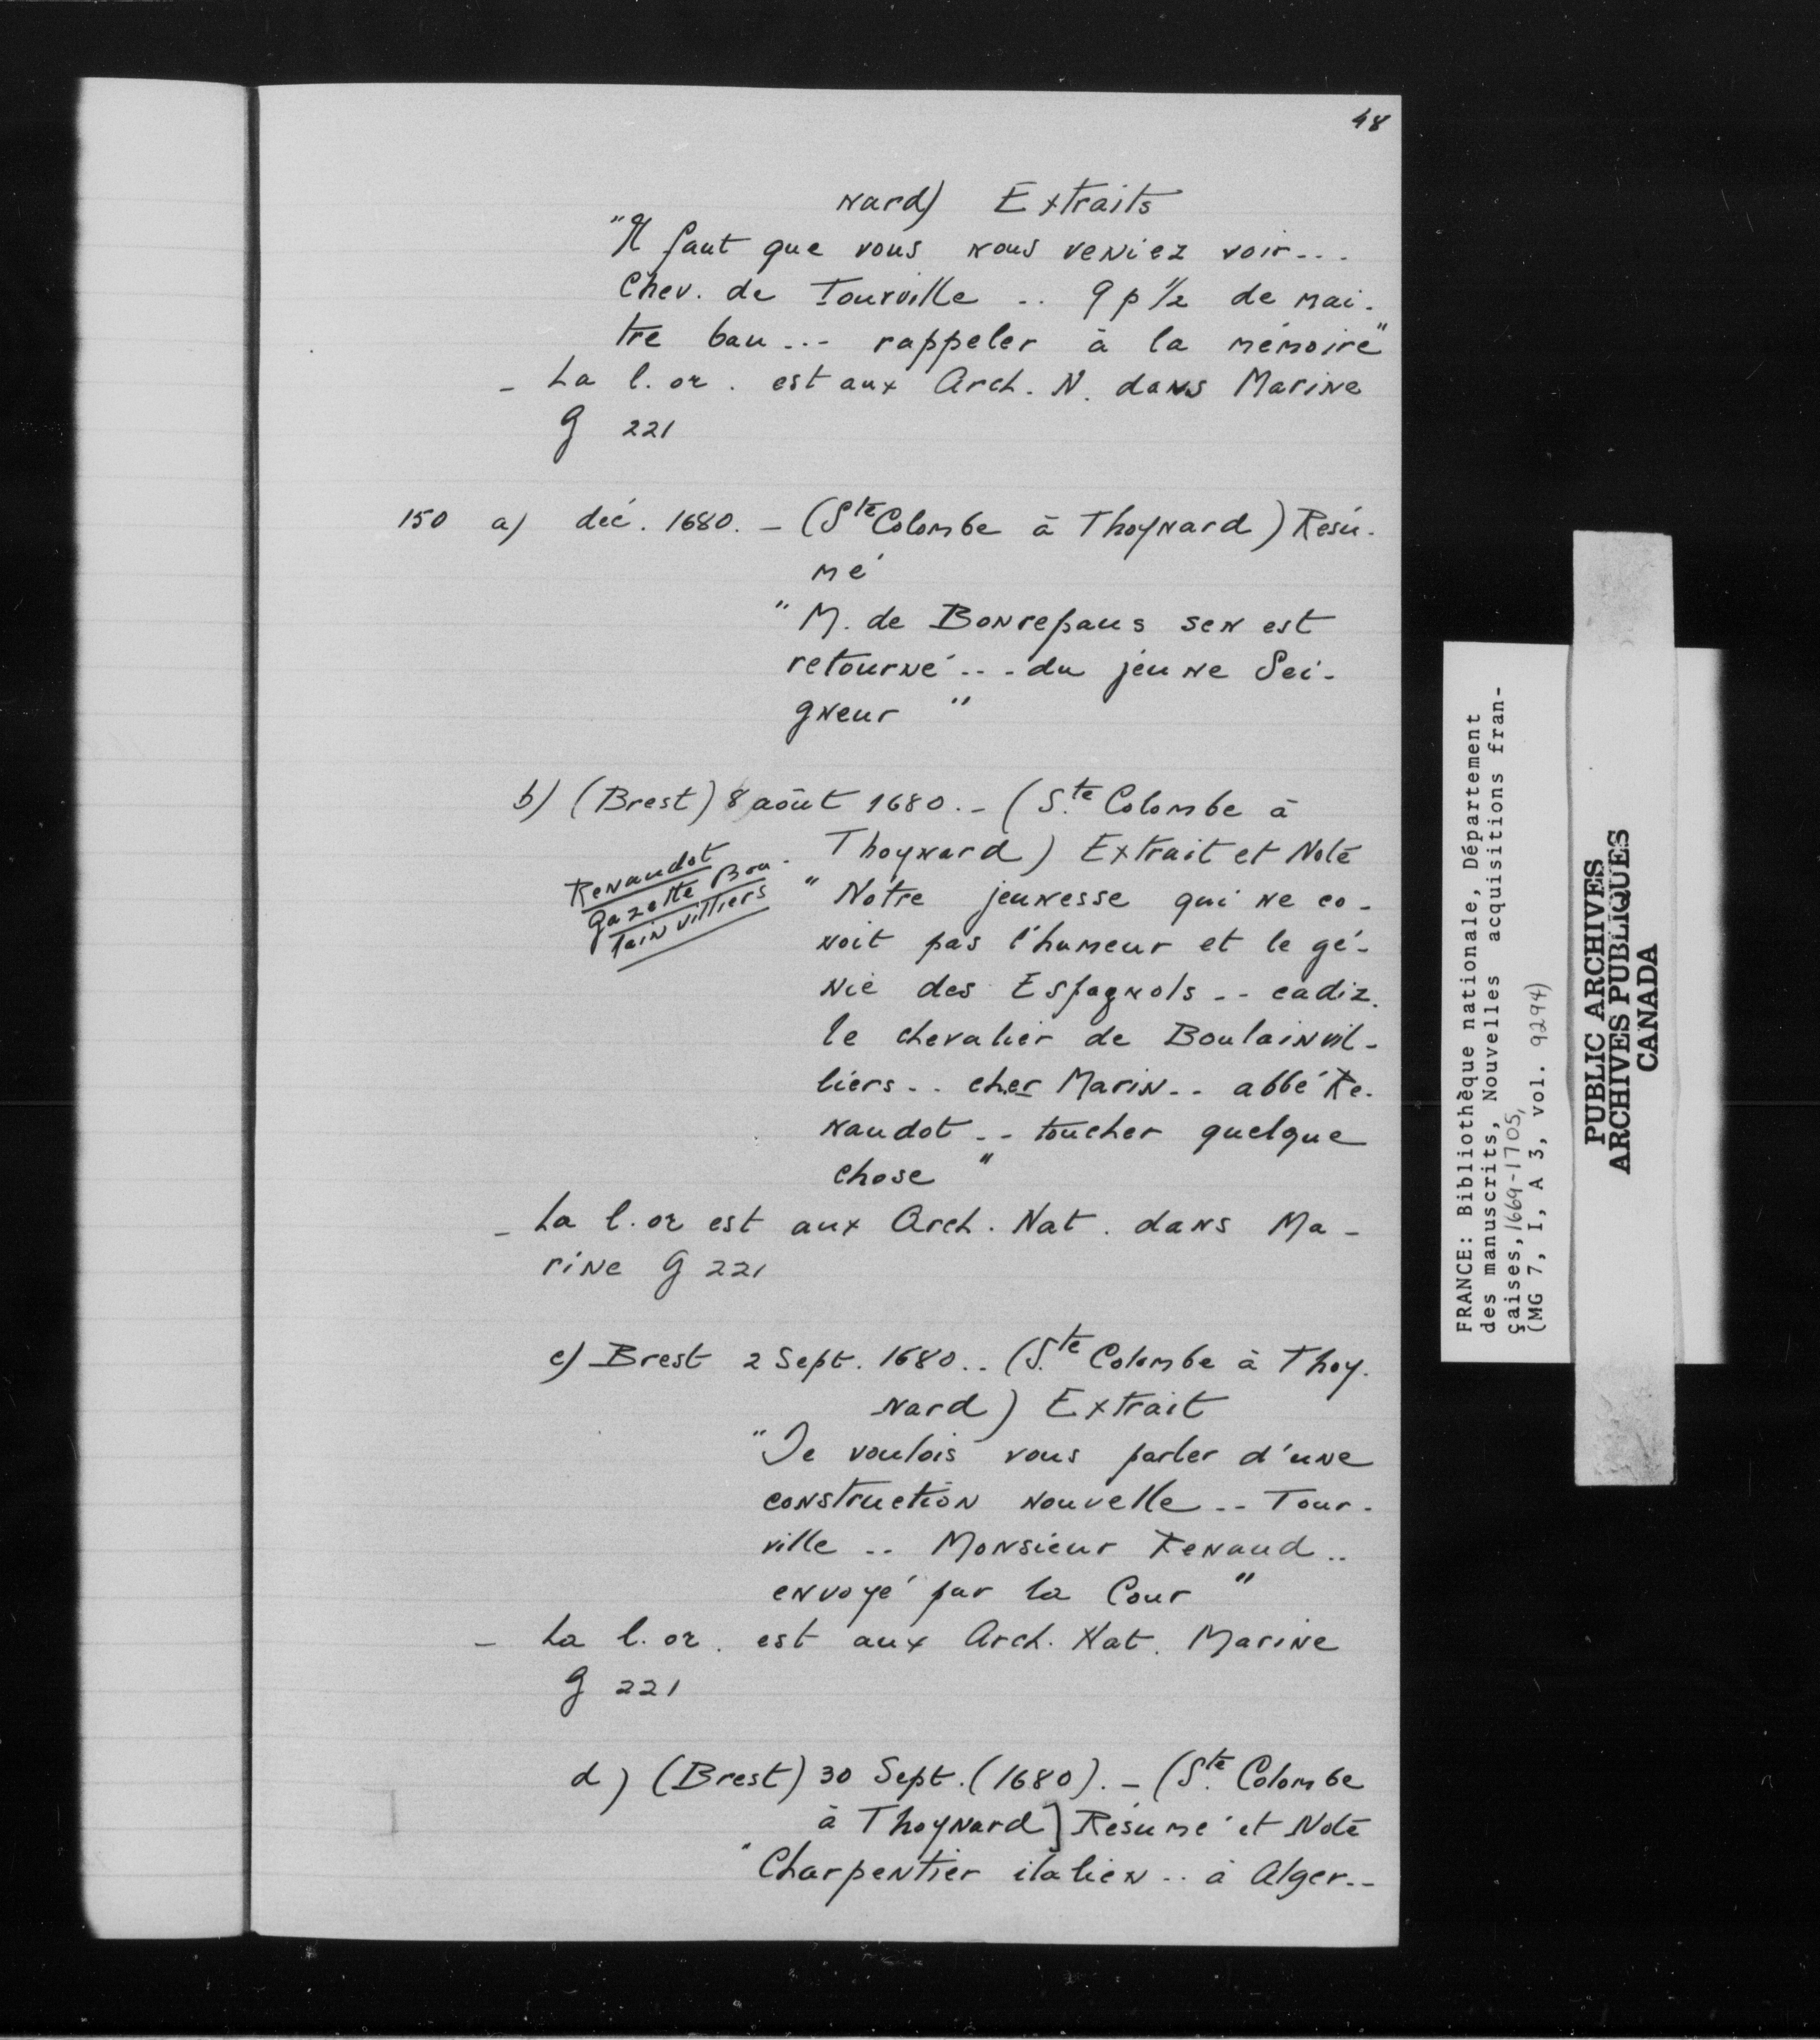 48
nard) Extraits
"Il faut que vous nous veniez voir...
Chev. de Tourville .. 9 p 1/2 de mai-
tre bau... rappeler à la mémoire"
- La l. or. est aux Arch. N. dans Marine
G 221
150 a) déc. 1680. - (Ste Colombe à Thoynard) Résu-
mé
"M. de Bonrepaus sen est
retourné... du jeune Sei-
gneur"
b) (Brest) 8 août 1680. - (Ste Colombe à
Thoynard) Extrait et Note
Renaudot
Gazette Bou-
lainvilliers
"Notre jeunesse qui ne co-
noit pas l'humeur et le gé-
nie des Espagnols .. cadiz.
le chevalier de Boulainvil-
liers .. cher Marin .. abbé Re-
naudot .. toucher quelque
chose"
- La l. or est aux Arch. Nat. dans Ma-
rine G 221
c) Brest 2 Sept. 1680.. (Ste Colombe à Thoy-
nard) Extrait
"Je voulois vous parler d'une
construction nouvelle .. Tour-
ville .. Monsieur Renaud ..
envoyé par la Cour"
- La l. or. est aux Arch. Nat. Marine
G 221
d) (Brest) 30 Sept. (1680). - (Ste Colombe
à Thoynard] Résumé et Note
"Charpentier italien .. à Alger..
FRANCE: Bibliothèque nationale, Département
des manuscrits, Nouvelles acquisitions fran-
çaises, 1669-1705,
(MG 7, I, A 3, vol. 9294)
PUBLIC ARCHIVES
ARCHIVES PUBLIQUES
CANADA